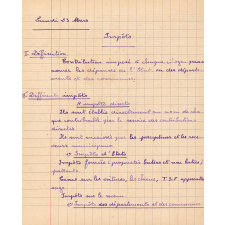 Lundi 23 Mars
Impôts
I Définition
Contribution imposé à chaque citoyen pour
couvrir les dépenses de l'Etat ou des départe-
ments et des communes.
Différents impôts
A impôts directs
Ils sont établis directement au nom de cha-
que contribuable par le service des contributions
directes
Ils sont encaissés par les percepteurs et les rece-
veurs municipaux
Impôts d'Etat
Impôts fonciers (propriétés baties et non baties)
patente
Taxes sur les voitures, les chiens, T.S.F. apprentis-
sage
Impôts sur le revenu
Impôts des départements et des communes